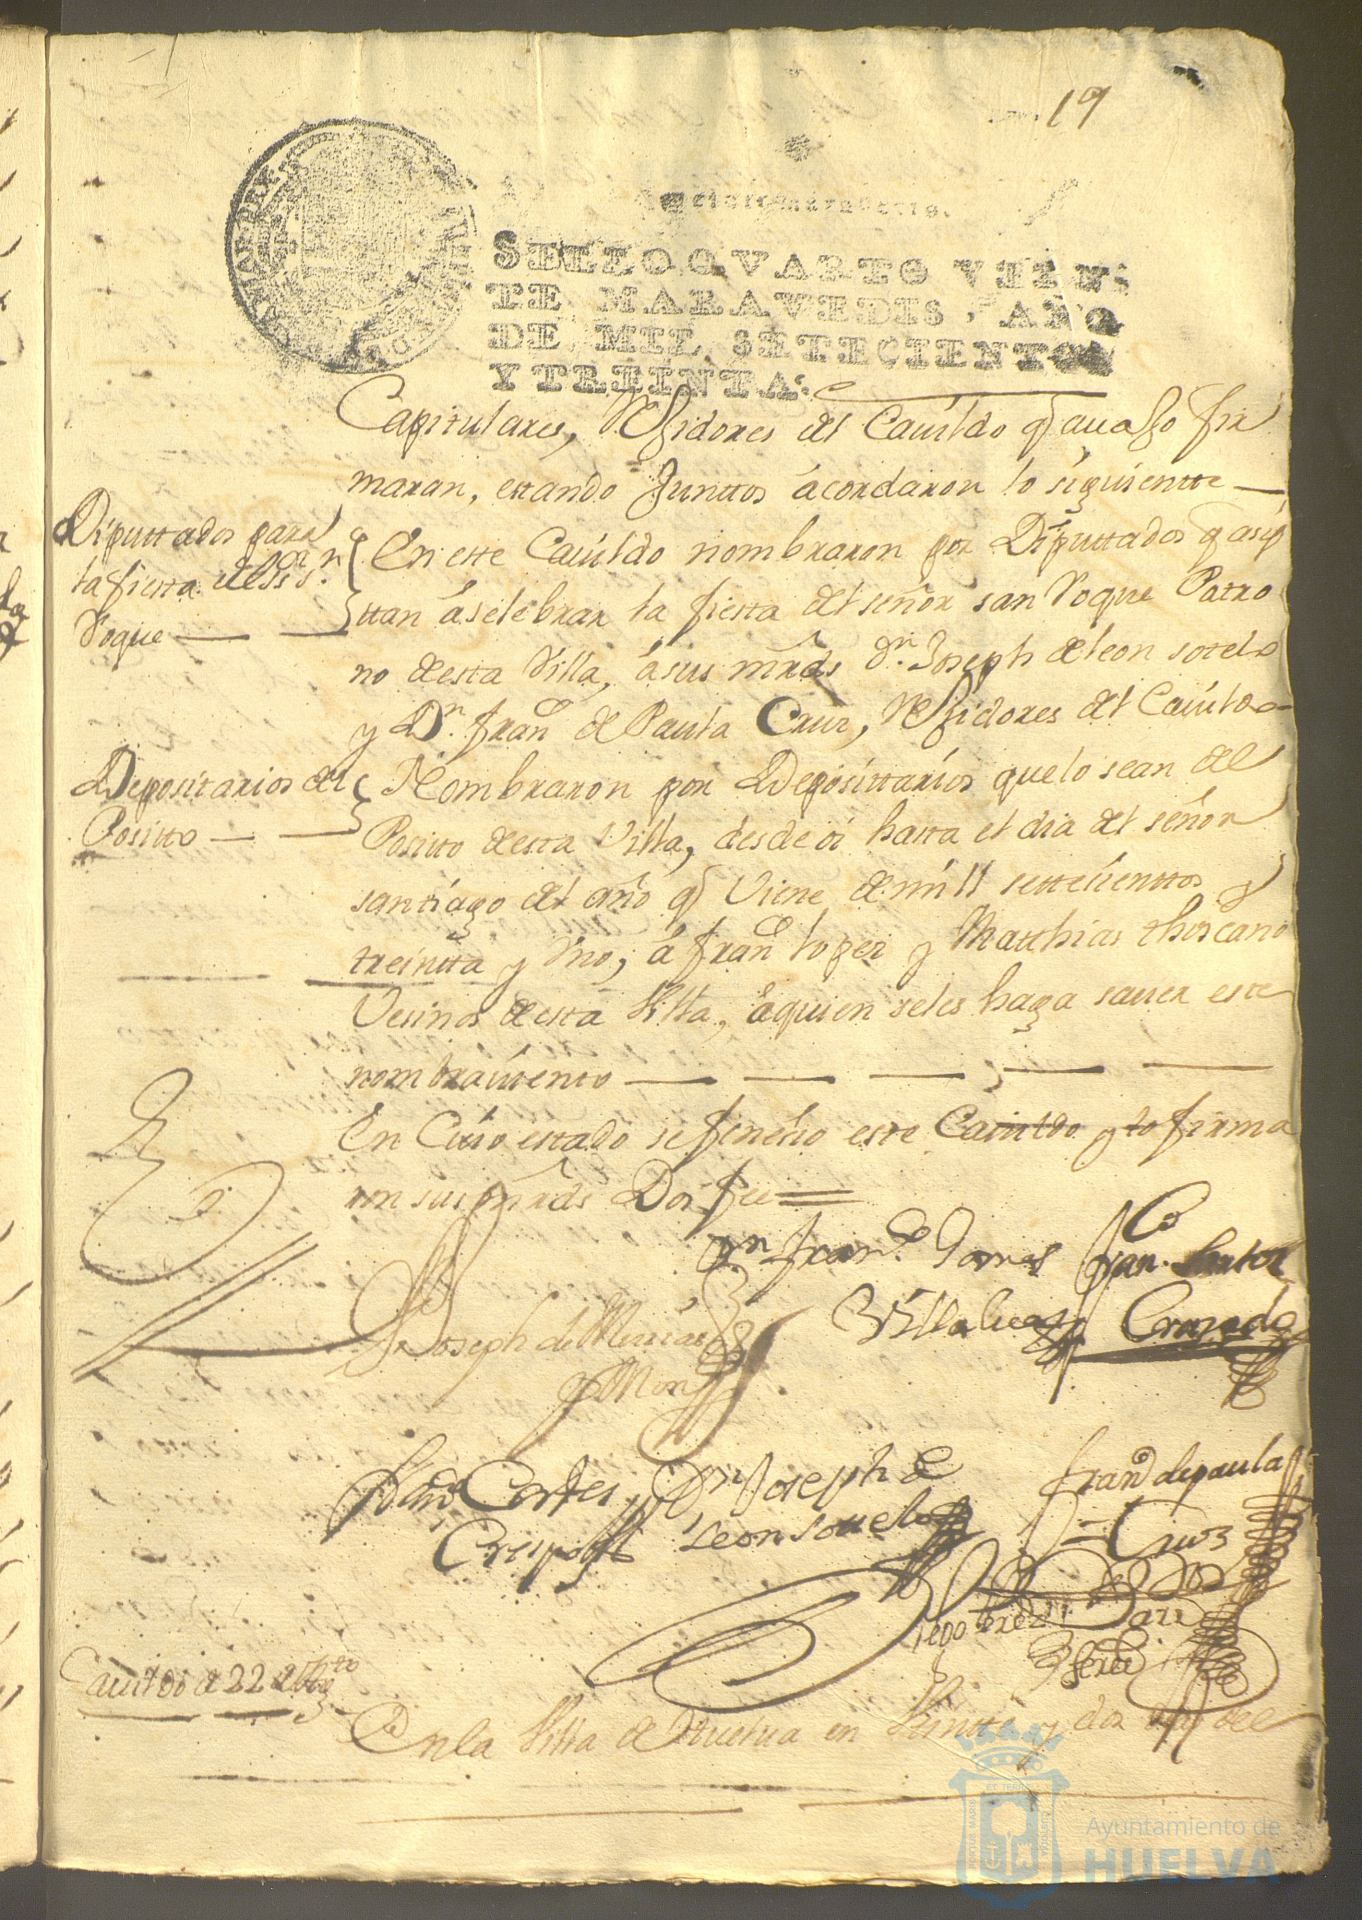 19
SELLO QVARTO VEIN-
TE MARAVEDIS, AÑO
DE MIL SETECIENTOS
Y TREINTA.
Capitulares, Rexidores del Cauildo q auajo fir
maran, estando Junttos acordaron lo siguientte
Diputtados para
la fiesta del Sr Sn
Roque
En este Cauildo nombraron por Diputtados q asis
ttan áselebrar la fiesta del señor san Roque Patro
no desta Villa, ásus mrds Dn Joseph de leon sotelo
y Dn Franco de Paula Cruz, Rexidores del Cauildo
Depositarios del
Positto
Nombraron por Depósittarios que lo sean del
Positto desta Villa, desde oi hasta el dia del señor
santiago del año q Viene de mill settesienttos y
treintta y Vno, á Franco lopez y Matthias thoscano
Vesinos desta Villa, áquien seles haga sauer este
nombramiento
En Cuio estado sefenesio este Cauildo y lo firma
ron sus mrds Doi fee
Dn Franco Torres
Villalueag
Cruzado
Joseph de
y Mon
Cortes
Crespo
Dn Joseph de
Leon Sotelo
Franco de paula
Cruz
Diego perez
Cauildo de 22 de
En la Villa de Huelva en Veinte y dos dias del
Ayuntamiento de
HUELVA